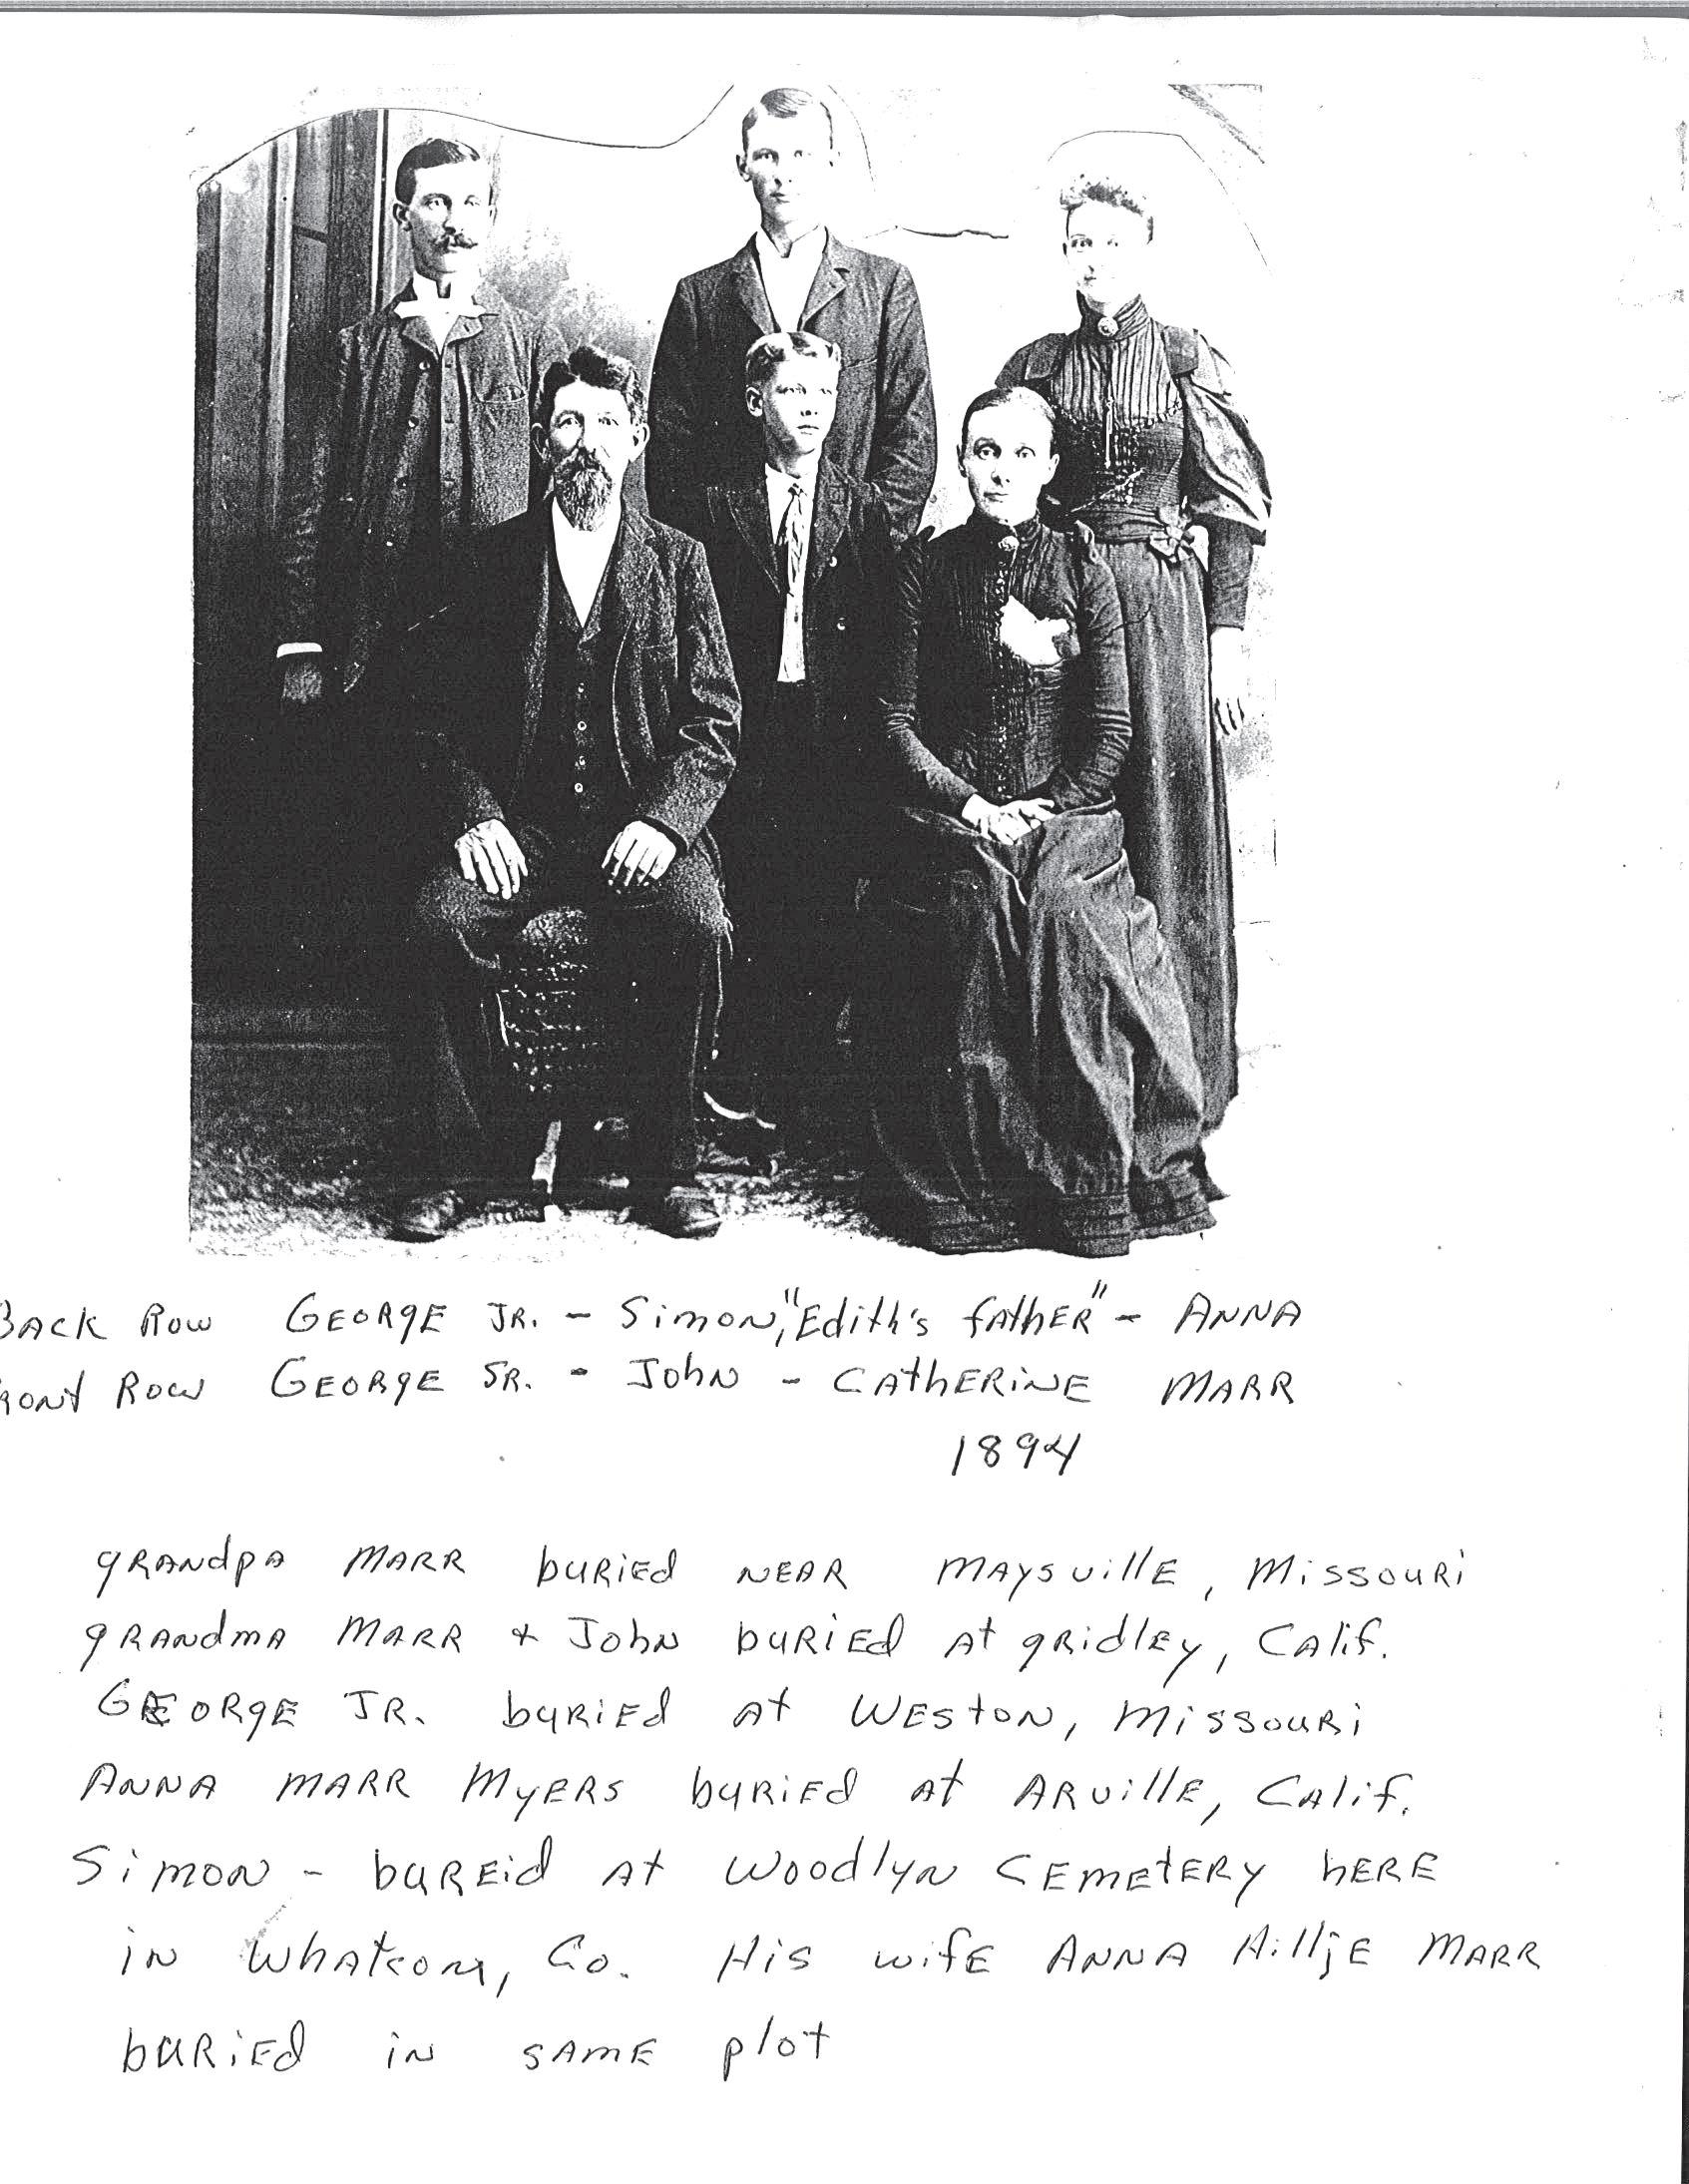 Back Row George Jr. - Simon, "Edith's father" - Anna
ront Row George Sr. - John - Catherine Marr
1894
grandpa Marr buried near Maysville, Missouri
grandma Marr + John buried at gridley, Calif.
George Jr. buried at Weston, Missouri
Anna Marr Myers buried at Arville, Calif.
Simon - bureid at Woodlyn Cemetery here
in Whatcom, Co. His wife Anna Hillje Marr
buried in same plot